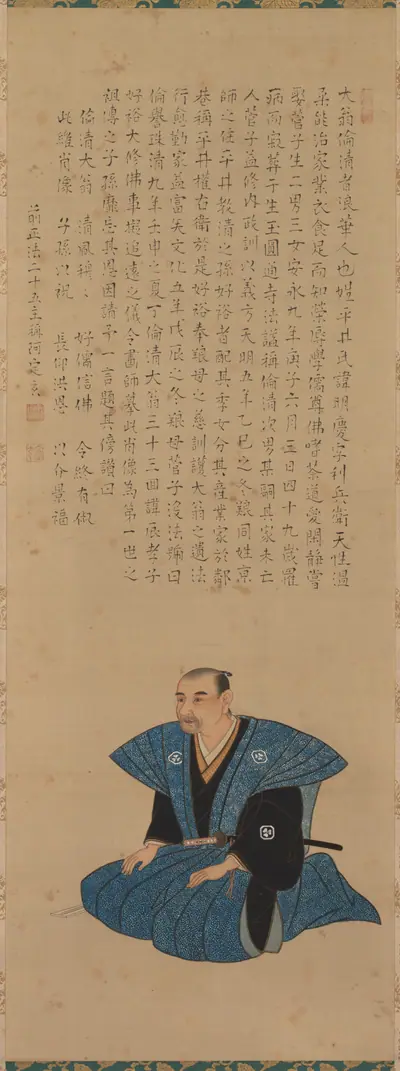 大翁倫清者浪華人也姓平井氏諱明慶字利兵衛天性温
柔能治家業衣食足而知榮辱學儒尊佛嗜茶道愛閑靜嘗
娶菅子生二男三女安永九年庚子六月三日四十九歳罹
病而寂葬于生玉圓通寺法諡稱倫清次男某嗣其家未亡
人菅子益修内政訓以義方天明五年乙巳之冬娘同姓京
師之住平井敎清之孫好裕者配其季女分其産業家於鄰
巷稱平井權右衛於是好裕奉娘母之慈訓護大翁之遺法
行愈勤家益富矣文化五年戊辰之冬娘母菅子没法號曰
倫譽珠清九年壬申之夏丁倫清大翁三十三回諱辰孝子
好裕大修佛事擬追遠之儀令畫師摹此肖像為第一世之
祖傳之子孫靡忘其恩因請予一言題其傍讃曰
倫清大翁 清風穆々 好儒信佛 令終有俶
此雖肖像 子孫以祝 長仰洪恩 以介景福
前正法二十五主稱阿